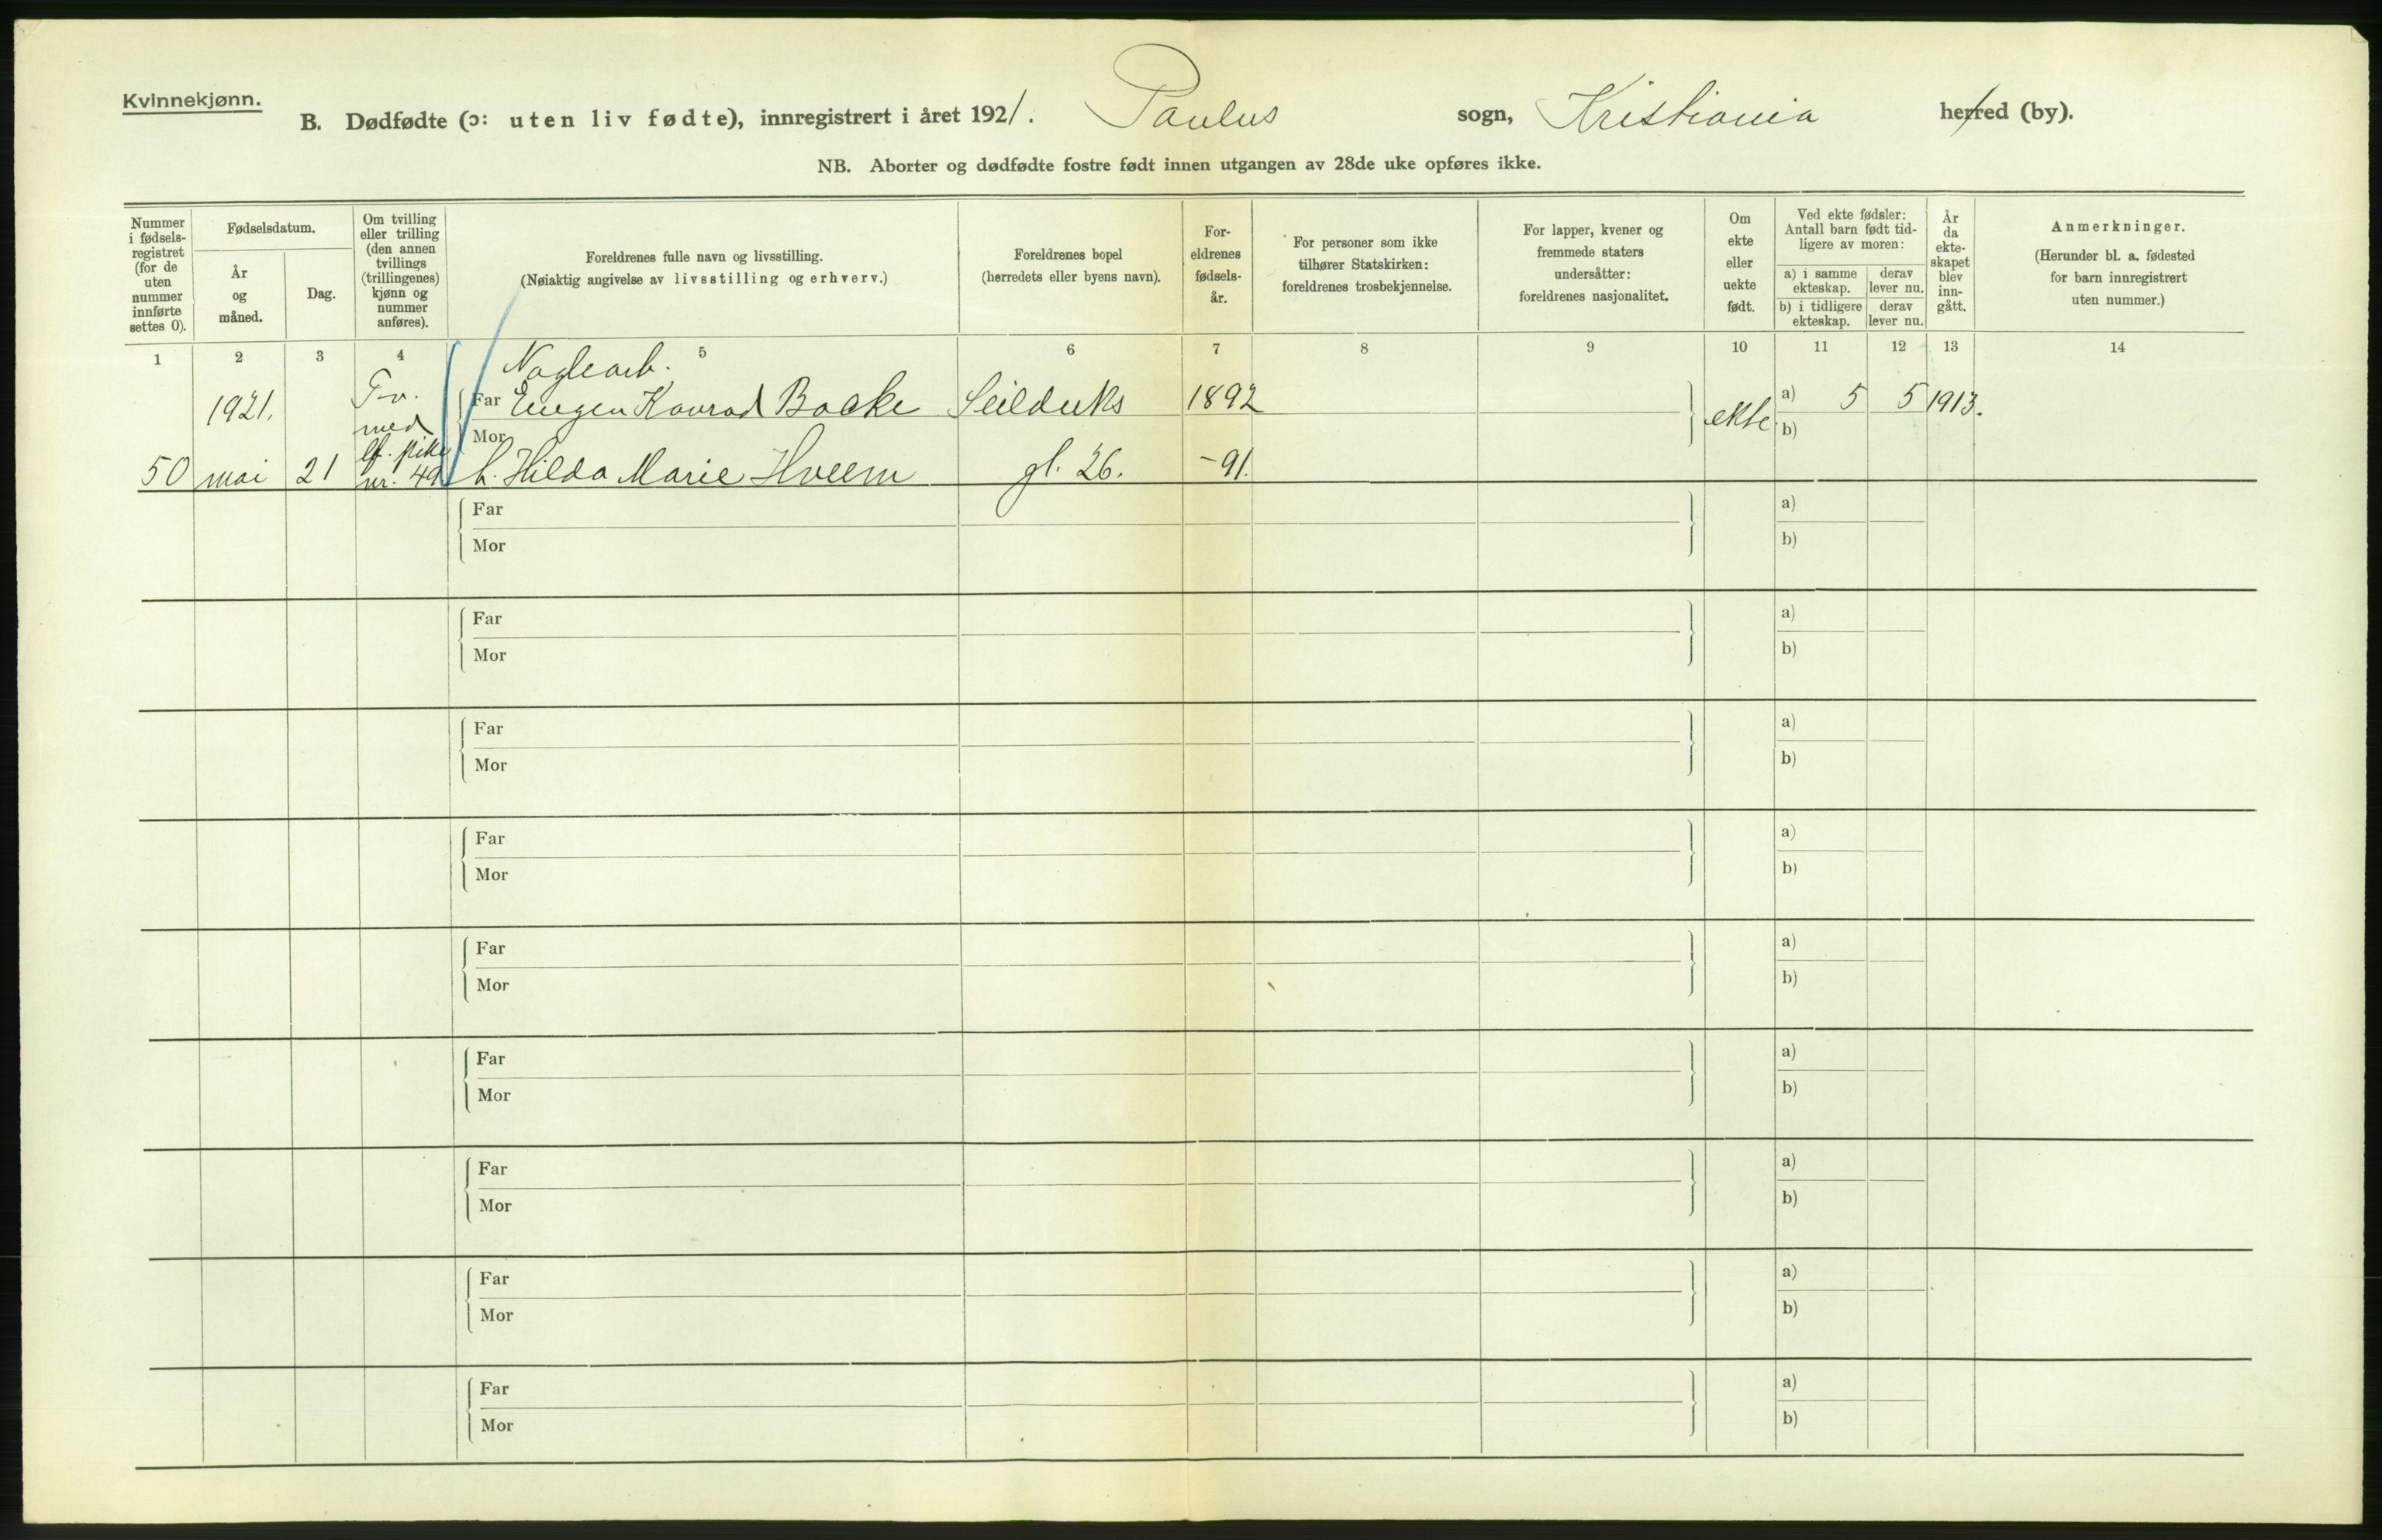 Kvinnekjønn.
B. Dødfødte (ɔ: uten liv fødte), innregistrert i året 1921. Paulus sogn, Kristiania herred (by).
NB. Aborter og dødfødte fostre født innen utgangen av 28de uke opføres ikke.
Nummer i fødselsregistret (for de uten nummer innførte settes 0).
Fødselsdatum.
År og måned.
Dag.
Om tvilling eller trilling (den annen tvillings (trillingenes) kjønn og nummer anføres).
Foreldrenes fulle navn og livsstilling.
(Nøiaktig angivelse av livsstilling og erhverv.)
Foreldrenes bopel
(herredets eller byens navn).
Foreldrenes fødselsår.
For personer som ikke tilhører Statskirken: foreldrenes trosbekjennelse.
For lapper, kvener og fremmede staters undersåtter: foreldrenes nasjonalitet.
Om ekte eller uekte født.
Ved ekte fødsler: Antall barn født tidligere av moren:
a) i samme ekteskap.
derav lever nu.
b) i tidligere ekteskap.
derav lever nu.
År da ekteskapet blev inngått.
Anmerkninger.
(Herunder bl. a. fødested for barn innregistrert uten nummer.)
1 2 3 4 5 6 7 8 9 10 11 12 13 14
Naglearb.
1921. Tv. Far Eugen Konrad Backe Seilduks 1892 ekte a) 5 5 1913.
med Mor b)
lf. pike
50 mai 21 nr. 49 h. Hilda Marie Hveem gl. 26. -91.
Far a)
Mor b)
Far a)
Mor b)
Far a)
Mor b)
Far a)
Mor b)
Far a)
Mor b)
Far a)
Mor b)
Far a)
Mor b)
Far a)
Mor b)
Far a)
Mor b)